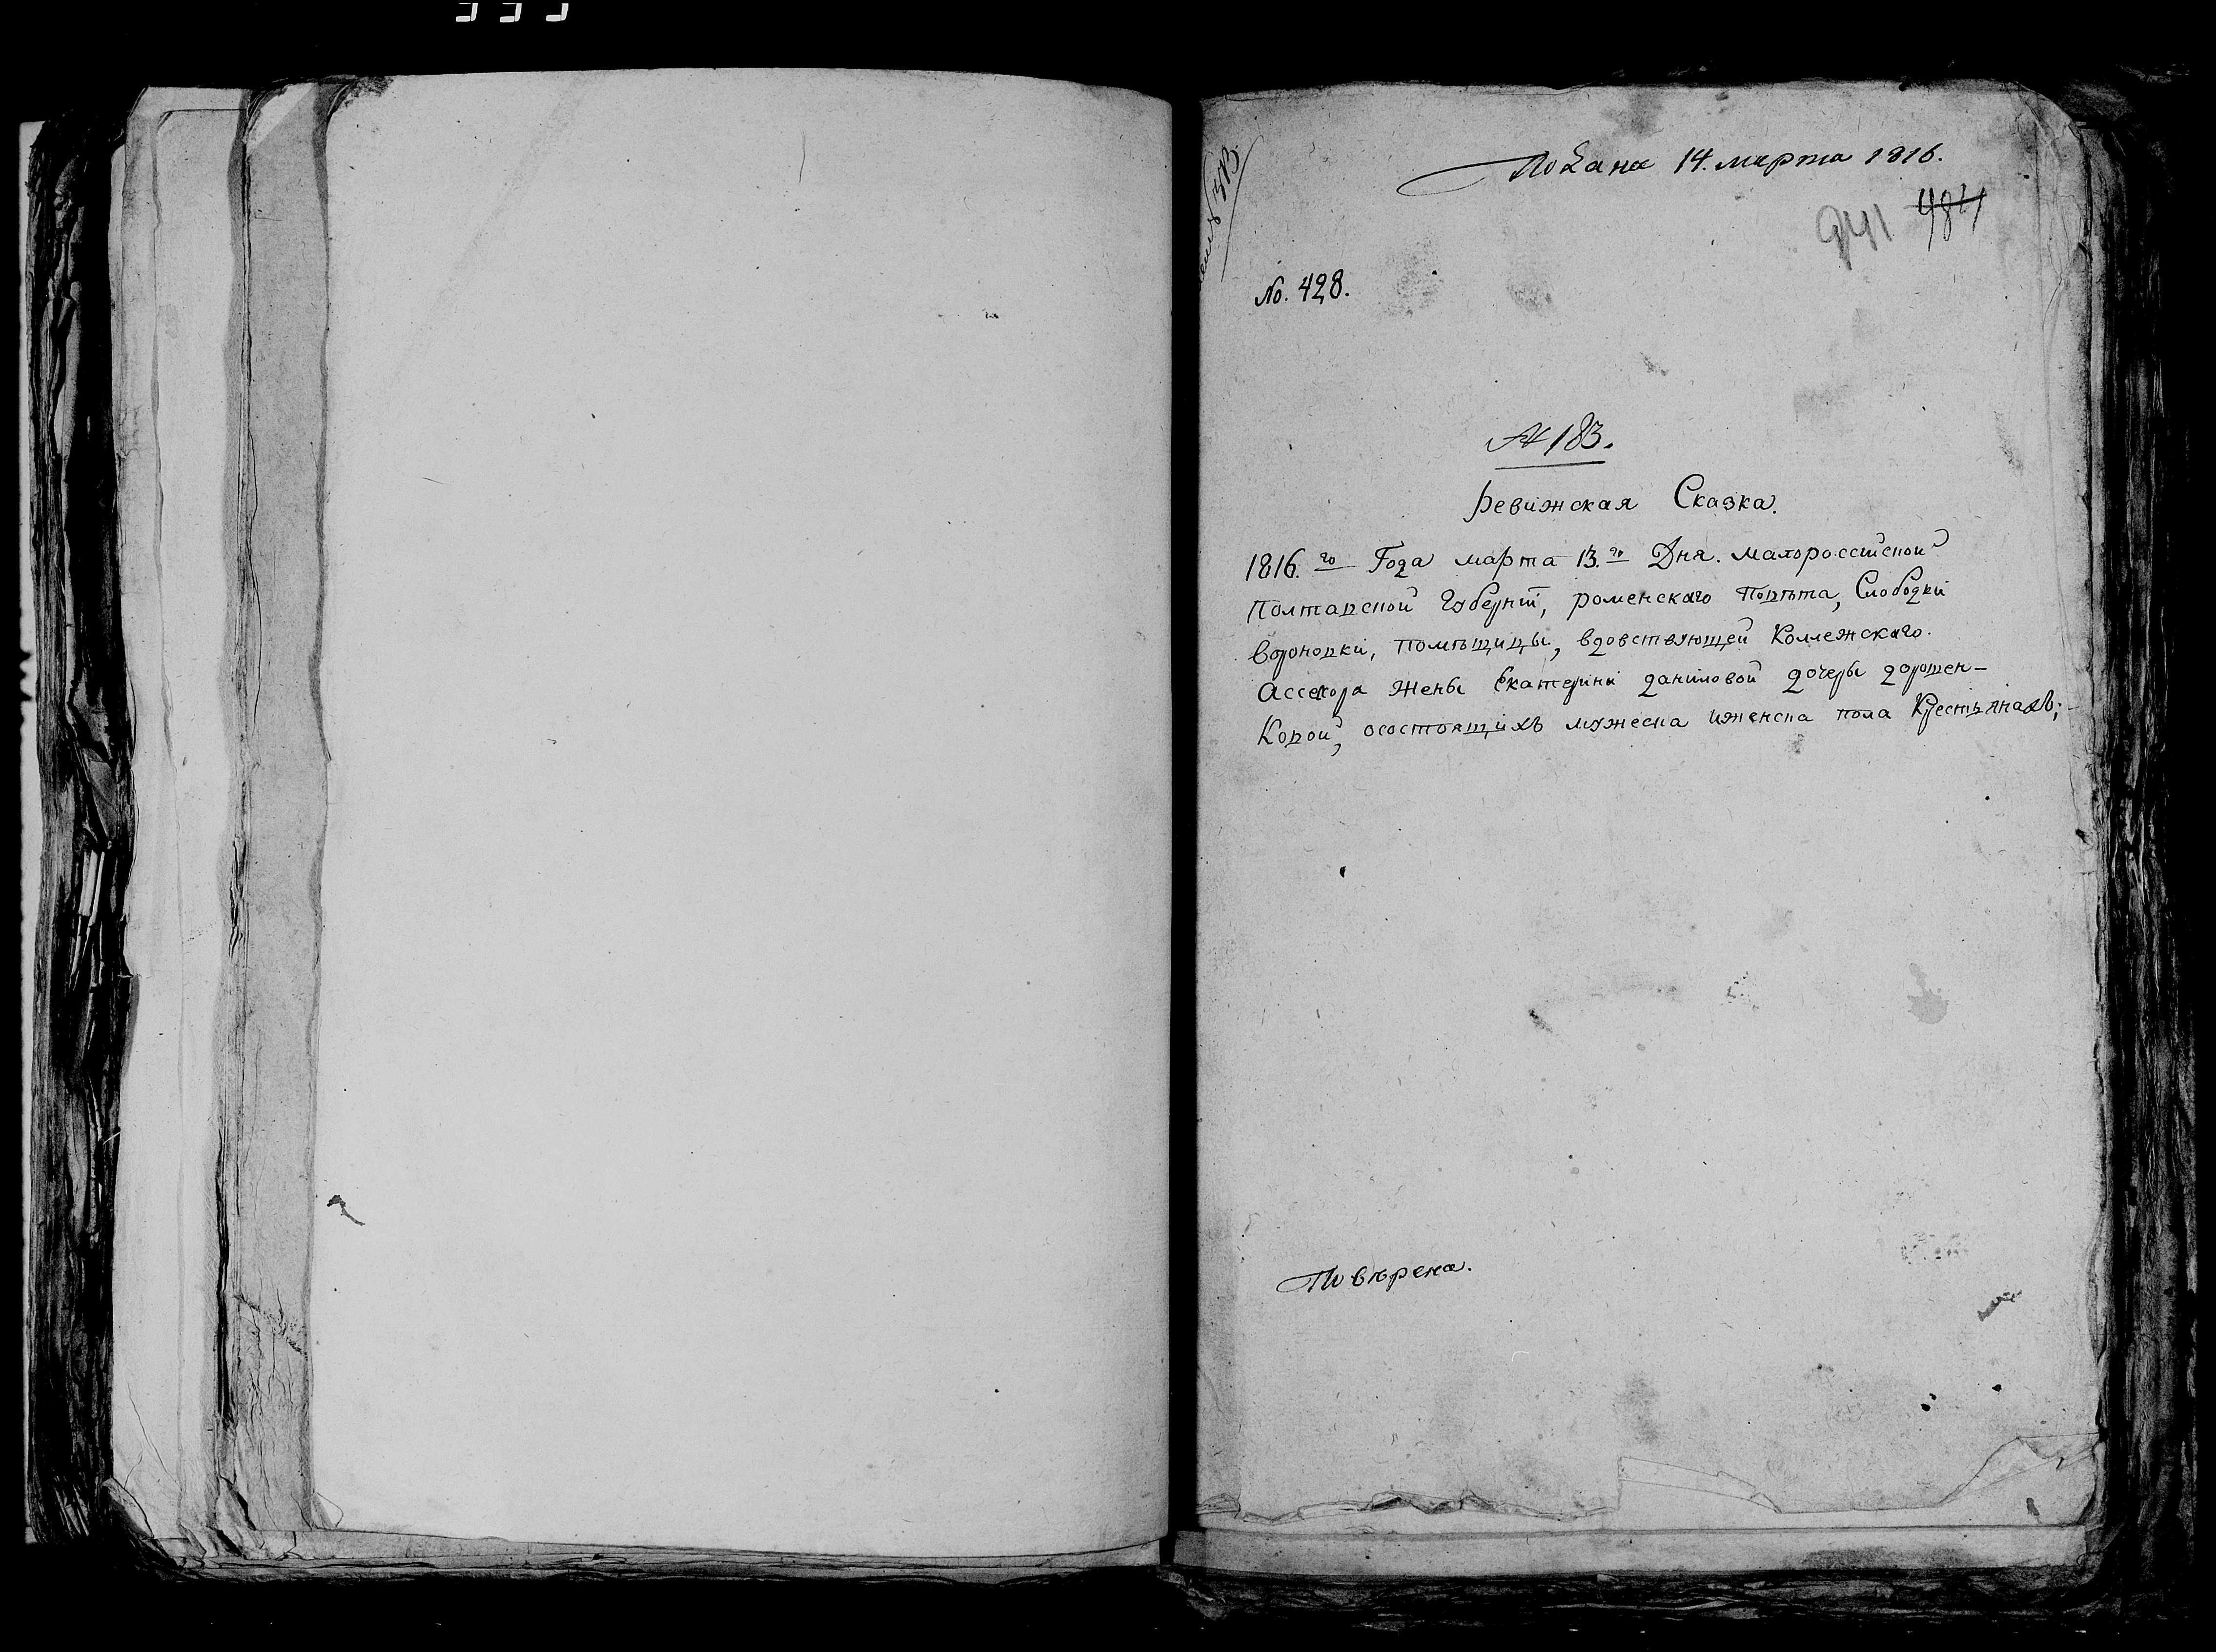 Подана 14. марта 1816.
941 484
No. 428.
№ 183.
Ревижская Сказка.
1816.го Года марта 13.го Дня. малороссийской
Полтавской Губернїи, роменскаго Повѣта, Слободки
Вороновки, Помѣщицы, вдовствующей Коллежскаго.
Ассесора Жены Екатерины даниловой дочеры дорошен-
Ковой, осостоящихъ мужеска иженска пола Крестьянахъ;
Повѣрена.